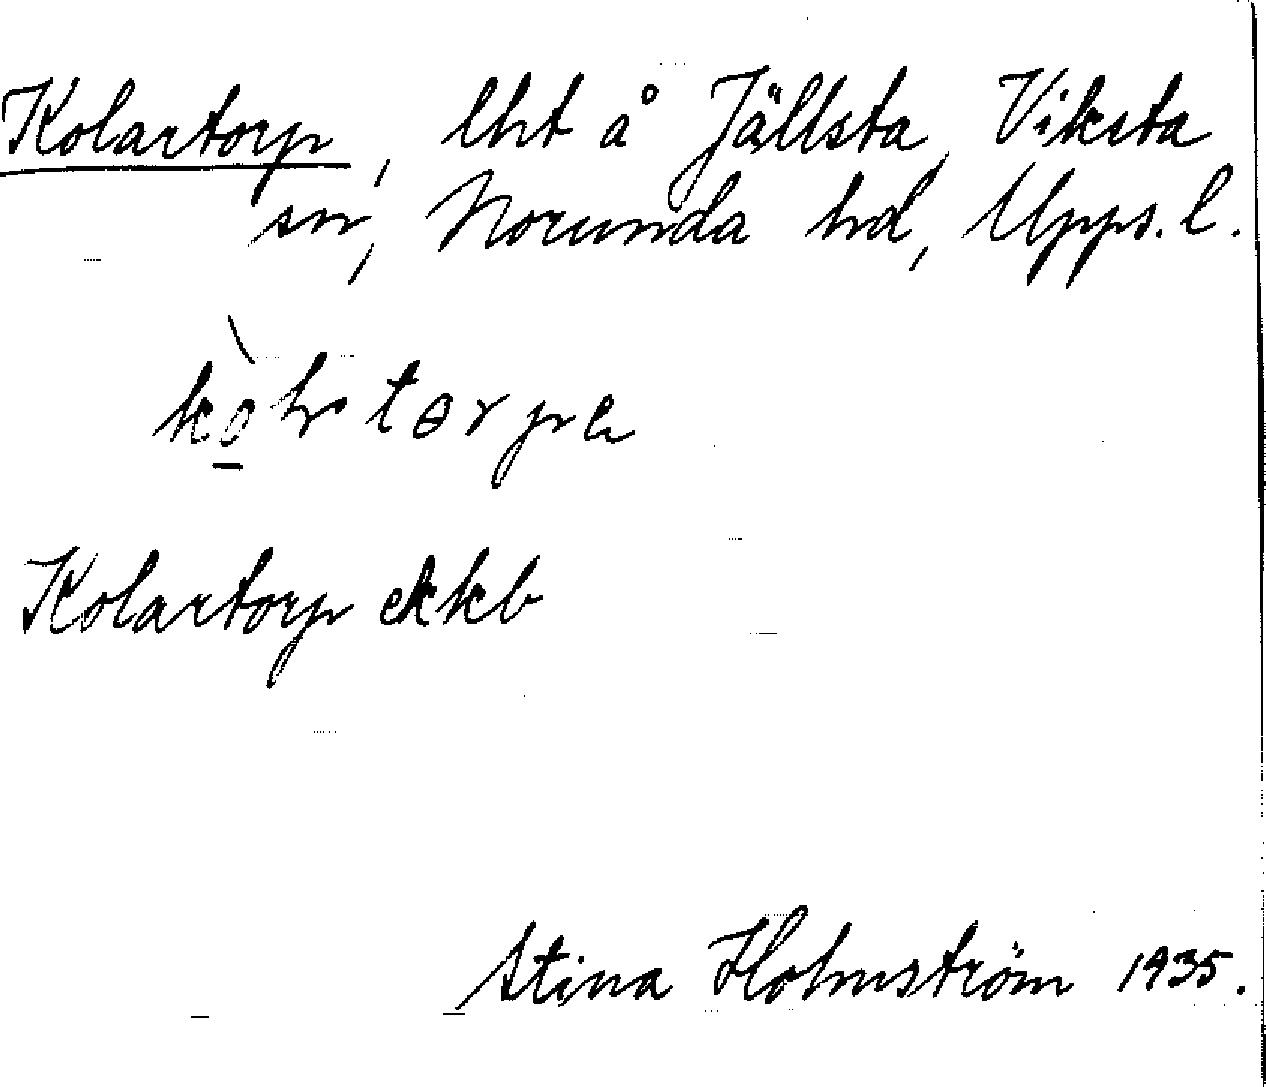 Kolartorp, lht å Jällsta, Viksta
sn, Norunda hd, Upps. l.
Kolartorp ekkb
Stina Holmström 1935.